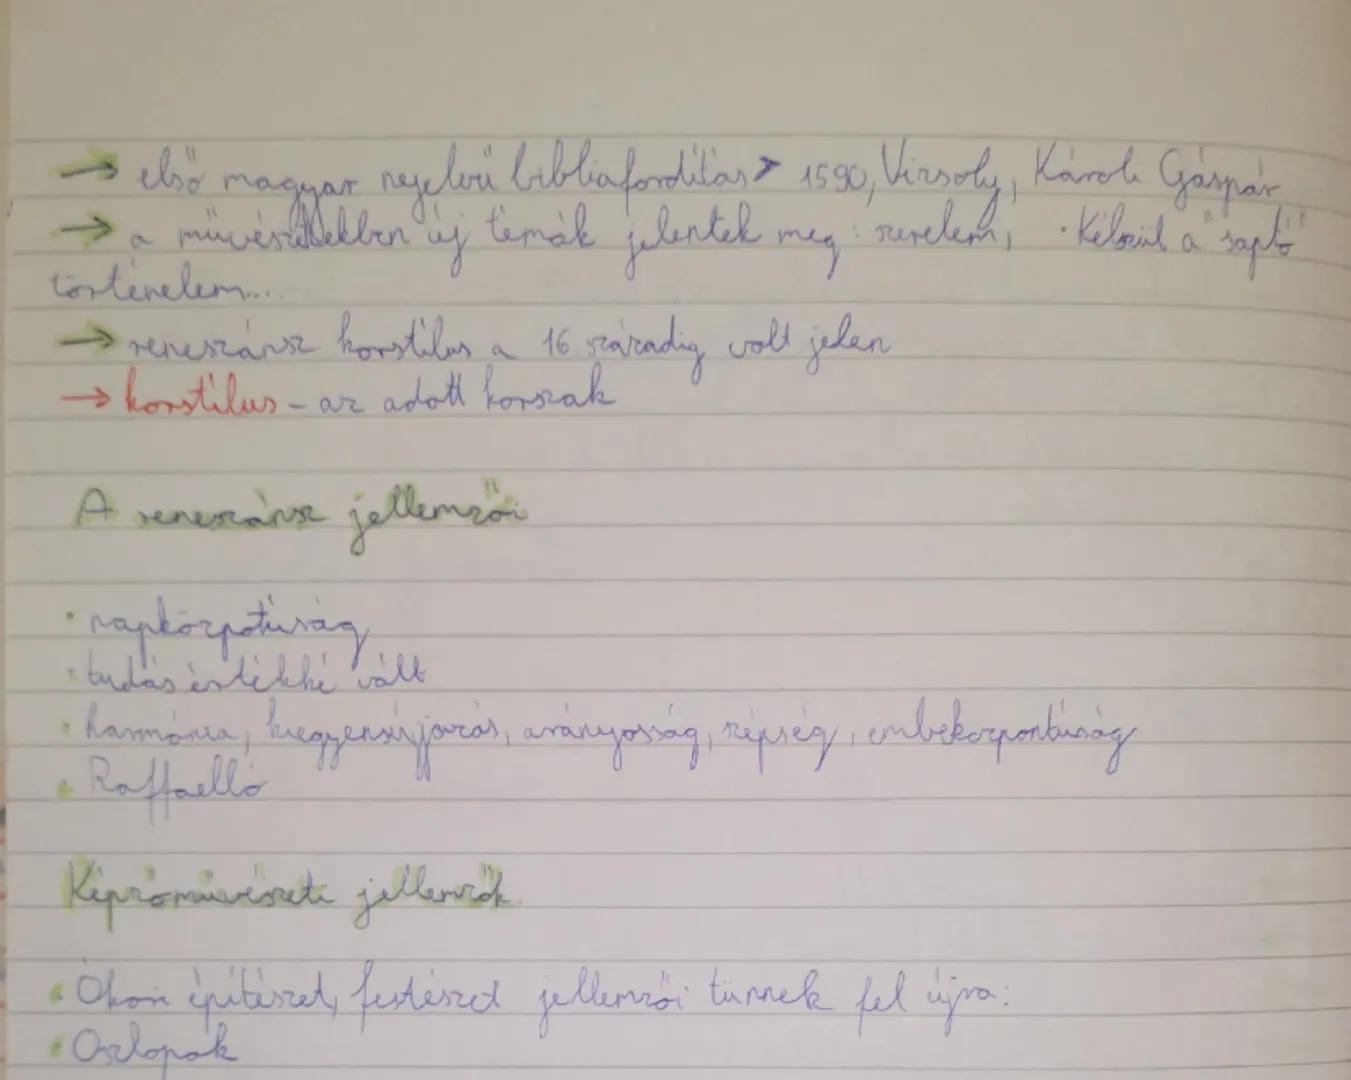 → első magyar nyelvű bibliafordítás > 1590, Vizsoly, Károli Gáspár
→ a művészetekben új témák jelentek meg: szerelem, • Kélszül a "sajtó"
történelem...
→ reneszánsz korstílus a 16 századig volt jelen
→ korstílus - az adott korszak
A reneszánsz jellemzői
• napközpotúság
• tudás értékké vált
• harmónia, kiegyensújozás, arányosság, szépség, embeközpontúság
• Raffaelló
Képzőművészeti jellemzők
• Ókori építészet, festészet jellemzői tűnnek fel újra:
• Oszlopok